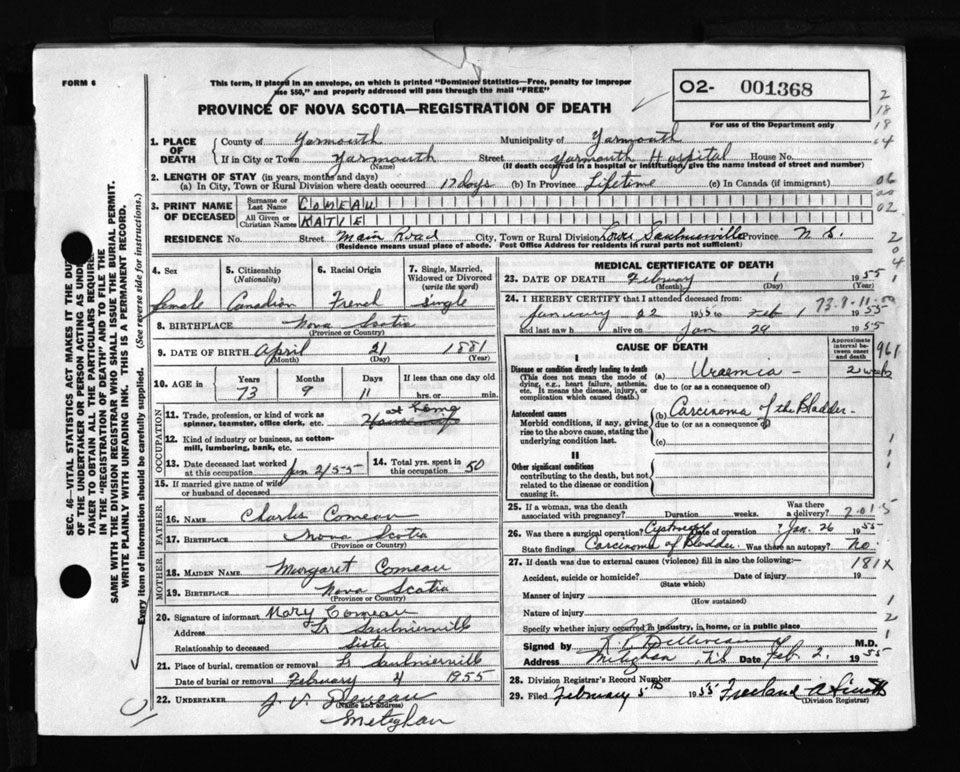 FORM 6
This form, if placed in an envelope, on which is printed "Dominion Statistics—Free, penalty for improper
use $50," and properly addressed will pass through the mail "FREE"
PROVINCE OF NOVA SCOTIA—REGISTRATION OF DEATH
O2- 001368
For use of the Department only
2
18
18
04
06
00
02
2
0
4
1
SEC. 46—VITAL STATISTICS ACT MAKES IT THE DUTY
OF THE UNDERTAKER OR PERSON ACTING AS UNDER-
TAKER TO OBTAIN ALL THE PARTICULARS REQUIRED
IN THE "REGISTRATION OF DEATH" AND TO FILE THE
SAME WITH THE DIVISION REGISTRAR WHO SHALL ISSUE THE BURIAL PERMIT.
WRITE PLAINLY WITH UNFADING INK. THIS IS A PERMANENT RECORD.
Every item of information should be carefully supplied. (See reverse side for instructions.)
1. PLACE OF DEATH
County of Yarmouth Municipality of Yarmouth
If in City or Town Yarmouth Street Yarmouth Hospital House No.
(Name) (If death occurred in a hospital or institution, give the name instead of street and number)
2. LENGTH OF STAY (in years, months and days)
(a) In City, Town or Rural Division where death occurred 17 days (b) In Province Lifetime (c) In Canada (if immigrant)
3. PRINT NAME OF DECEASED
Surname or Last Name COMEAU
All Given or Christian Names KATIE
RESIDENCE No. Street Main Road City, Town or Rural Division Lower Saulnierville Province N S.
(Residence means usual place of abode. Post Office Address for residents in rural parts not sufficient)
4. Sex 5. Citizenship (Nationality) 6. Racial Origin 7. Single, Married, Widowed or Divorced (write the word)
female Canadian French single
8. BIRTHPLACE Nova Scotia
(Province or Country)
9. DATE OF BIRTH April 21 1881
(Month) (Day) (Year)
10. AGE in Years Months Days If less than one day old
73 9 11 hrs. or min.
OCCUPATION
11. Trade, profession, or kind of work as spinner, teamster, office clerk, etc. at home
12. Kind of industry or business, as cotton-mill, lumbering, bank, etc.
13. Date deceased last worked at this occupation Jan 2/55 14. Total yrs. spent in this occupation 50
15. If married give name of wife or husband of deceased
FATHER
16. NAME Charles Comeau
17. BIRTHPLACE Nova Scotia
(Province or Country)
MOTHER
18. MAIDEN NAME Margaret Comeau
19. BIRTHPLACE Nova Scotia
(Province or Country)
20. Signature of informant Mary Comeau
Address Lr Saulnierville
Relationship to deceased Sister
21. Place of burial, cremation or removal Lr Saulnierville
Date of burial or removal February 4 1955
22. UNDERTAKER
(Name and address)
Meteghan
MEDICAL CERTIFICATE OF DEATH
23. DATE OF DEATH February 1 1955
(Month) (Day)
24. I HEREBY CERTIFY that I attended deceased from: 73-9-11-00
January 22 1955 to Feb 1
and last saw h alive on Jan 29 1955
CAUSE OF DEATH
Approximate interval between onset and death
961
I
Disease or condition directly leading to death
(This does not mean the mode of dying, e.g., heart failure, asthenia, etc. It means the disease, injury, or complication which caused death.)
(a) Uraemia - 2 weeks
due to (or as a consequence of)
Antecedent causes
Morbid conditions, if any, giving rise to the above cause, stating the underlying condition last.
(b) Carcinoma of the Bladder -
due to (or as a consequence of)
(c)
1
1
1
II
Other significant conditions
contributing to the death, but not related to the disease or condition causing it.
25. If a woman, was the death associated with pregnancy? Duration weeks. Was there a delivery? 2-01-5
26. Was there a surgical operation? Date of operation ? Jan. 26 1955
State findings Carcinoma of Bladder. Was there an autopsy? No
27. If death was due to external causes (violence) fill in also the following:— 181X
Accident, suicide or homicide? Date of injury 19
(State which)
Manner of injury
(How sustained)
1
2
1
Nature of injury
Specify whether injury occurred in industry, in home, or in public place
Signed by M.D.
Address Meteghan, N S Date Feb 2, 1955
28. Division Registrar's Record Number
29. Filed February 5th 1955 Freeland A Smith
(Division Registrar)